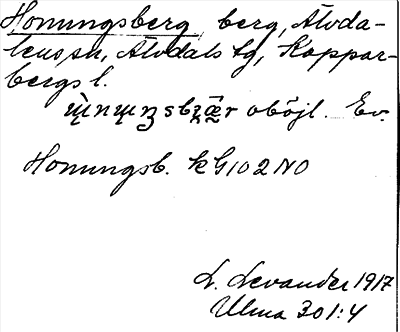 Honungsberg, berg, Älvda-
lens sn, Älvdals tg, Koppar-
bergs l.
oböjl. Ev.
Honungsb. kG102NO
L. Levander 1917
Ulma 301:4